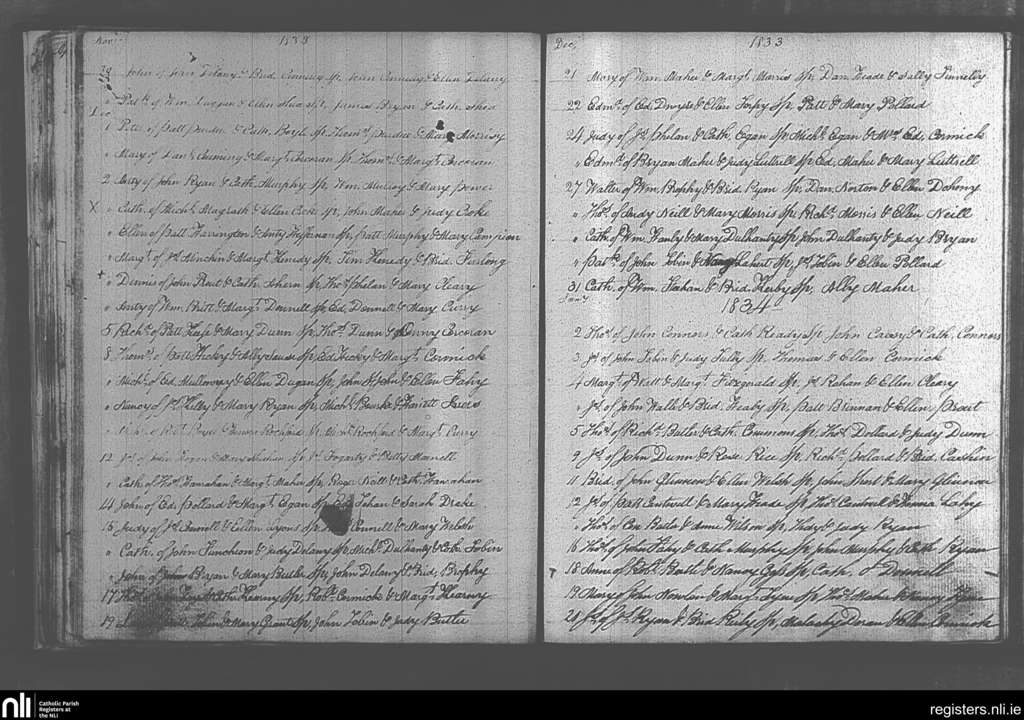 Nov. 1833
29 John of Wm Delany & Brid. Connelly Sp. John Connelly & Ellen Delany
" Patk. of Wm. & Sp. James Bryan & Cath. Shea
Dec.
1 Peter of Patt & Cath. Boyle Sp. Thoms. & Mary Morrisy
" Mary of Danl. Cuming & Margt. Corcoran Sp. Thoms. & Margt. Corcoran
2 Anty of John Ryan & Cath. Murphy Sp. Wm. Murray & Mary Power
X " Cath. of Michl. Magrath & Ellen Cooke Sp. John Maher & Judy Cooke
" Ellen of Patt Harrington & Anty Heffernan Sp. Patt Murphy & Mary Campion
" Margt. of Js. Minchin & Margt. Kenedy Sp. Tim Kenedy & Brid. Furlong
+ " Dennis of John Prout & Cath. Ahern Sp. Thos. Phelan & Mary Cleary
" Anty of Wm. Britt & Margt. Donnell Sp. Ed. Donnell & Mary Curry
5 Richd. of Patt Hays & Mary Dunn Sp. Thos. Dunn & Corcoran
8 Thoms. of Patt Hickey & Ally Sp. Ed. Hickey & Margt. Cormick
" Michl. of Ed. Mullowney & Ellen Dugan Sp. John St. John & Ellen Fahy
" Nancy of Js. Kelly & Mary Ryan Sp. Michl. Burke & Harriett
" of & Rochford Sp. Rochford & Margt. Curry
12 Js. of John Hogan & Mary Sp. Js. Fogarty & Betty
" Cath. of Thos. Hanrahan & Margt. Maher Sp. Roger & Cath. Hanrahan
14 John of Ed. Pollard & Margt. Egan Sp. Ed. & Sarah Drake
15 Judy of Js. Connell & Ellen Lyons Sp. Connell & Mary Webster
" Cath. of John Funcheon & Judy Delany Sp. Michl. Dulhanty & Cath. Tobin
" John of John Bryan & Mary Butler Sp. John Delany & Brid. Brophy
17 of & Cath. Kearny Sp. Robt. Cormick & Margt. Kearny
19 of Tobin & Mary Grant Sp. John Tobin & Judy Butler
Dec. 1833
21 Mary of Wm. Maher & Margt. Morris Sp. Dan. Meade & Sally Finnelly
22 Edmd. of Ed. Dwyer & Ellen Torpy Sp. Patt & Mary Pollard
24 Judy of Js. Phelan & Cath. Egan Sp. Michl. Egan & Mrs. Ed. Cormick
" Edmd. of Bryan Maher & Judy Luttrell Sp. Ed. Maher & Mary Luttrell
27 Walter of Wm. Brophy & Brid. Ryan Sp. Dan. Norton & Ellen Doheny
" Thos. of Andy Neill & Mary Morris Sp. Richd. Morris & Ellen Neill
" Cath. of Wm. Hanly & Mary Dulhanty Sp. John Dulhanty & Judy Bryan
" Patk. of John Tobin & Lahert Sp. Js. Tobin & Ellen Pollard
31 Cath. of Wm. Feehan & Brid. Kirby Sp. Ally Maher
Jany. 1834
2 Thos. of John Connors & Cath. Ready Sp. John & Cath. Connors
3 Js. of John Tobin & Judy Tully Sp. Thomas & Ellen Cormick
4 Margt. of Watt & Margt. Fitzgerald Sp. Js. Rahan & Ellen Cleary
" Js. of John Wall & Brid. Healy Sp. Patt Brennan & Ellen Prout
5 Thos. of Richd. Butler & Cath. Commons Sp. Thos. Dollard & Judy Dunn
9 Js. of John Dunn & Rose Rice Sp. Richd. Dollard & Brid. Cashin
11 Brid. of John Gleeson & Ellen Welsh Sp. John & Mary Gleeson
12 Js. of Patt Cantwell & Mary Meade Sp. Thos. Cantwell & Leahy
" Thos. of Butler & Anne Wilson Sp. & Judy Ryan
16 Thos. of John Fahy & Cath. Murphy Sp. John Murphy & Cath. Ryan
18 Anne of Robt. & Nancy Sp. Cath. O Donnell
19 Mary of John Nowlan & Margt. Sp. Thos. Maher & Nancy
20 Js. of Js. Ryan & Brid Sp. Malachy Doran & Ellen Cormick
nli Catholic Parish
Registers at
the NLI
registers.nli.ie